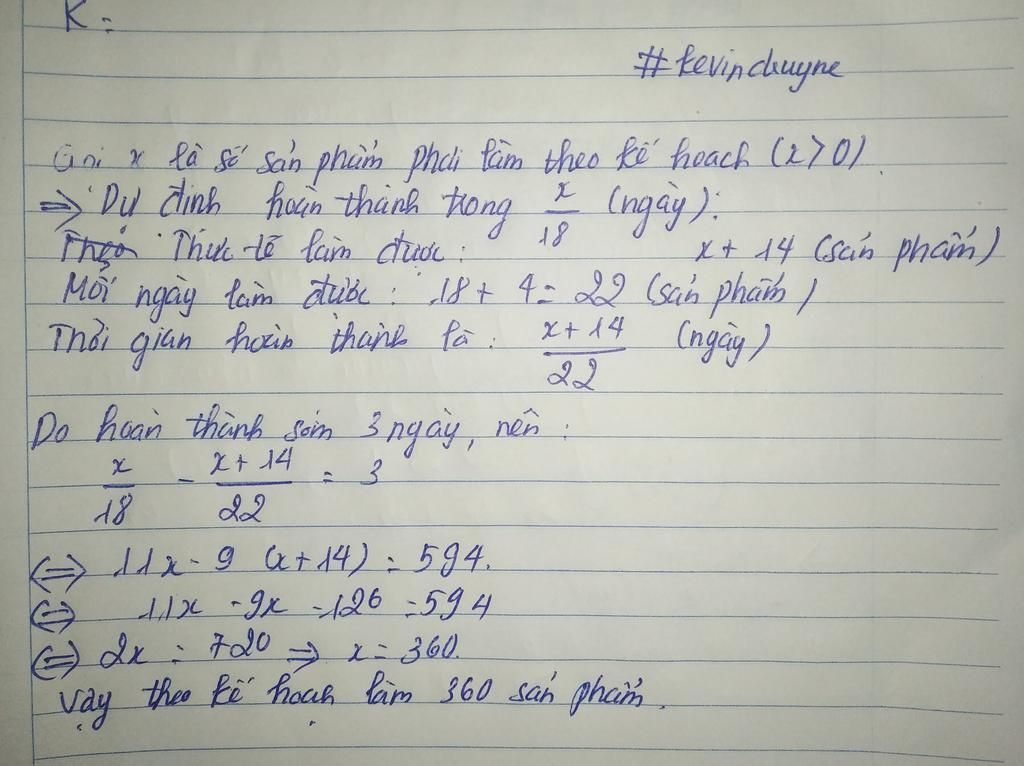 K =
#kevinchuyne
Gọi x là số sản phẩm phải làm theo kế hoạch (x > 0)
=> Dự định hoàn thành trong x/18 (ngày).
Theo Thực tế làm được : x + 14 (sản phẩm)
Mỗi ngày làm được : 18 + 4 = 22 (sản phẩm)
Thời gian hoàn thành là : x + 14/22 (ngày)
Do hoàn thành sớm 3 ngày, nên :
x/18 - x + 14/22 = 3
<=> 11x - 9 (x + 14) = 594.
<=> 11x - 9x - 126 = 594
<=> 2x = 720 => x = 360.
Vậy theo kế hoạch làm 360 sản phẩm.